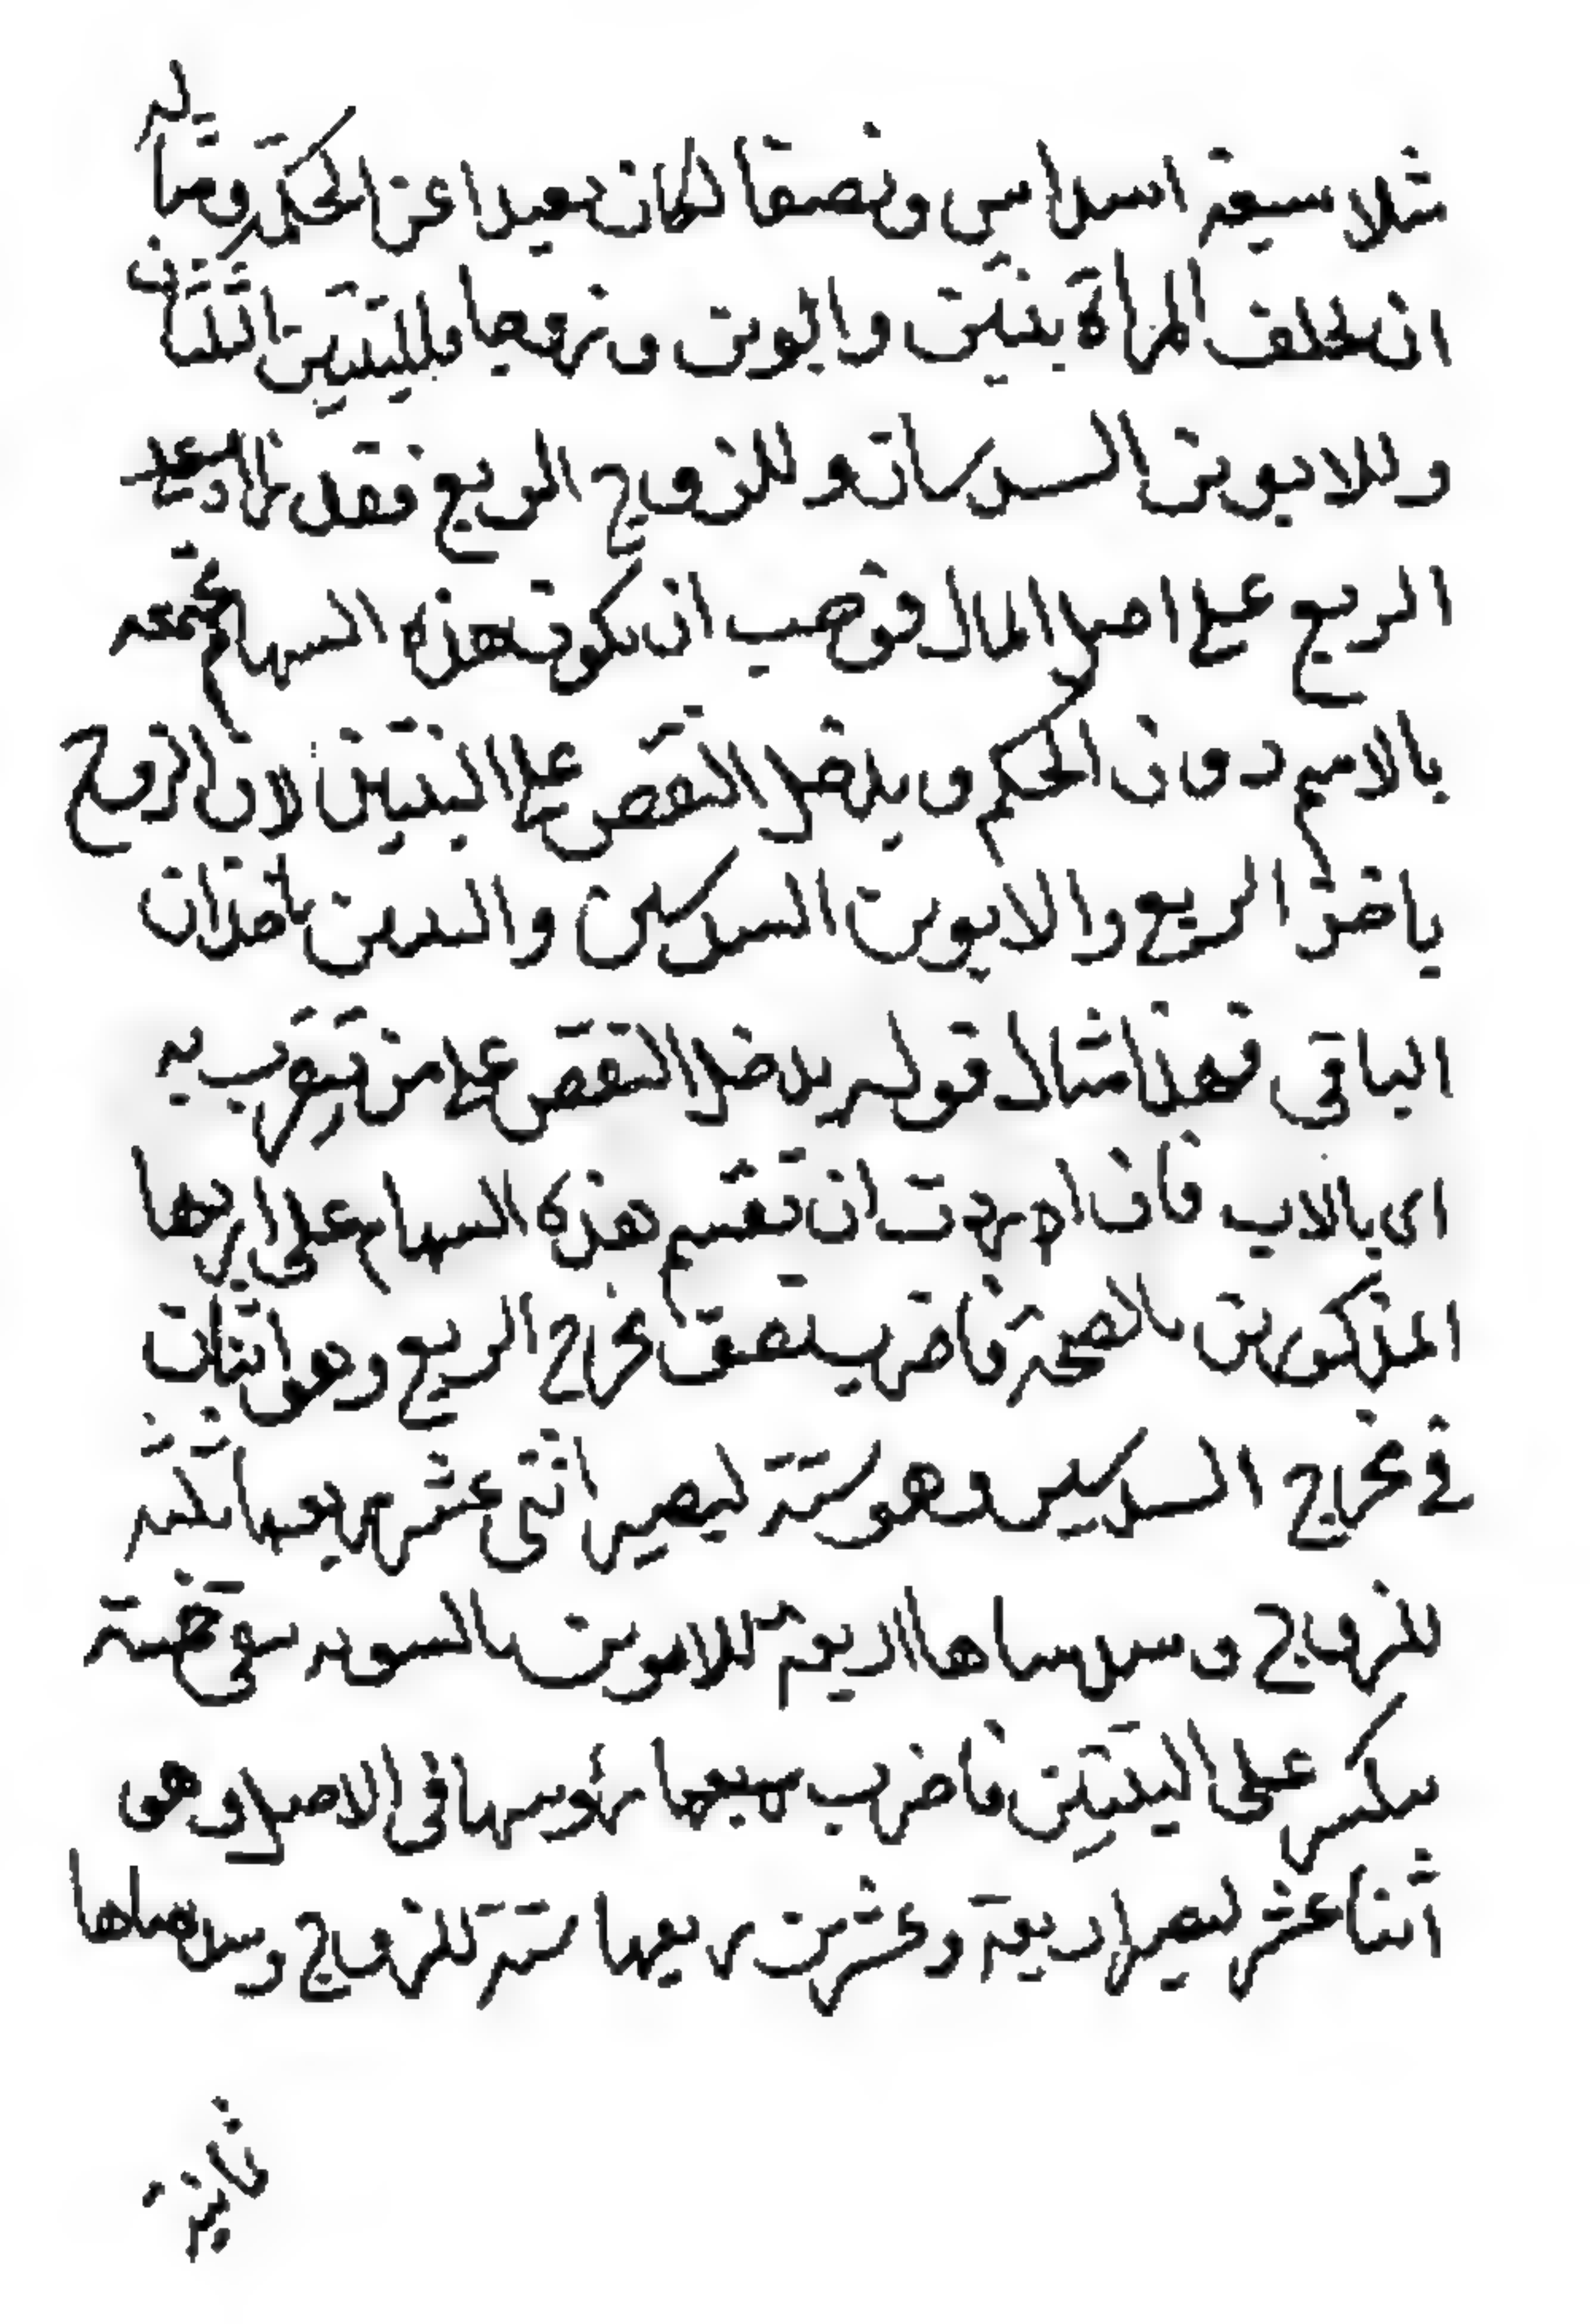 مثلا سبعة اسداس ونصفا لكان بعيدا عن الحكمة ومثاله
ان تخلف المراة بنتين وابوين وزوجها فللبنتين الثلثان
وللابوين السدسان وللزوج الربع فقد زاد
الربع على اصل المال فوجب ان تكون هذه السهام مجتمعه
بالاسم دون الحكم ويدخل النقص على البنتين لان الزوج
ياخذ الربع والابوين السدسين والبنتين ياخذان
الباقى فهذا مثال قوله يدخل النقص على من تقرب به
اى بالاب فان اردت ان تقسم هذه السهام على اربابها
المذكورين بالصحة فاضرب نصف مخرج الربع وهو اثنان
فى مخرج السدسين وهو ستة ليصير اثنى عشر ربعها ثلثة
للزوج وسدساها اربعة للابوين بالسويه بقى خمسة
ينكسر على البنتين فاضرب سبعها رؤسها فى الاصل وهو
اثنا عشر ليصير اربعة وعشرين ربعها ستة للزوج وسدساها
ثمانية